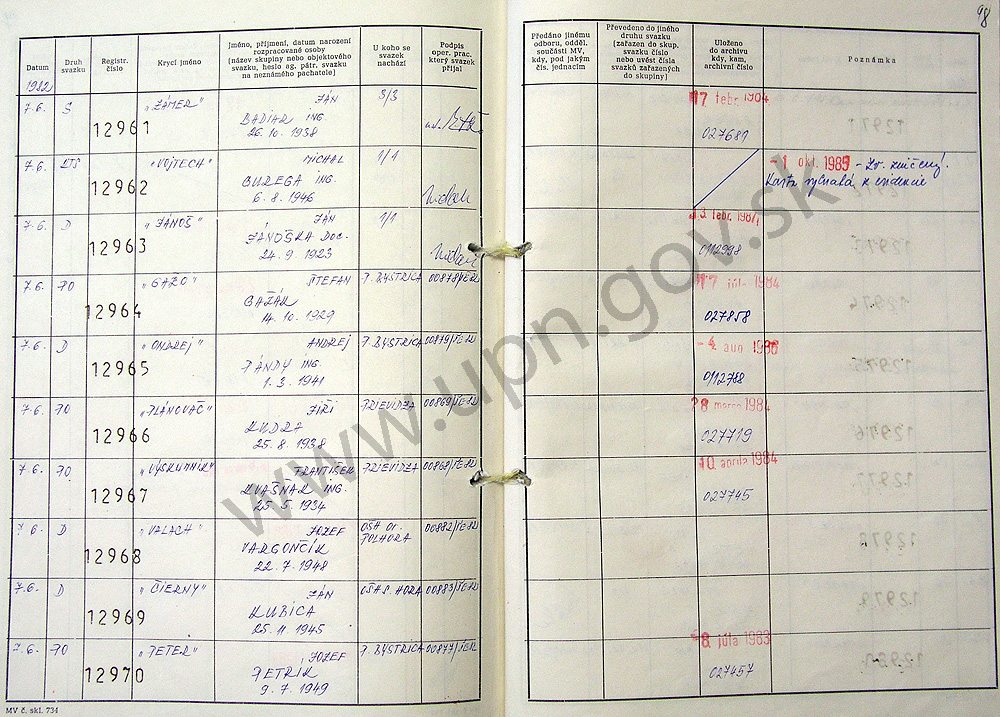 98
Datum
Druh svazku
Registr. číslo
Krycí jméno
Jméno, příjmení, datum narození
rozpracované osoby
(název skupiny nebo objektového
svazku, heslo ag. pátr. svazku
na neznámého pachatele)
U koho se
svazek
nachází
Podpis
oper. prac.
který svazek
přijal
Předáno jinému
odboru, odděl.
součásti MV,
kdy, pod jakým
čís. jednacím
Převedeno do jiného
druhu svazku
(zařazen do skup.
svazku číslo
nebo uvést čísla
svazků zařazených
do skupiny)
Uloženo
do archivu
kdy, kam,
archivní číslo
Poznámka
1982
7.6. S 12961 "ZÁMER" JÁN 3/3
BADIAR ING.
26.10.1938
17 febr. 1984
027681
7.6. 12962 "VOJTECH" MICHAL 1/1
BUREGA ING.
6.8.1946
-1 okt. 1985 - Zv. zničený.
Karta vybratá z evidencie
7.6. D 12963 "JÁNOŠ" JÁN 1/1
JÁNOŠKA Doc.
24.9.1923
febr. 1984
0112998
7.6. PO 12964 "GAŽO" ŠTEFAN P. BYSTRICA
GAŽÁK
14.10.1929
17 júl 1984
027858
7.6. D 12965 "ONDREJ" ANDREJ P. BYSTRICA
PÁNDY ING.
1.3.1941
- 4 aug 1986
0112788
7.6. PO 12966 "PLÁNOVAČ" JIŘÍ PRIEVIDZA
KUDRA
25.8.1938
marca 1984
027719
7.6. PO 12967 "VÝSKUMNÍK" FRANTIŠEK PRIEVIDZA
KVAŠŇÁK ING.
1934
10 apríla 1984
027745
7.6. D 12968 "VALACH" JOZEF
VARGONČÍK
22.7.1948
7.6. D 12969 "ČIERNY" JÁN
KUBICA
25.11.1945
7.6. PO 12970 "PETER" JOZEF P. BYSTRICA
PETRÍK
9.7.1949
8 júla 1983
027457
MV č. skl. 734
www.upn.gov.sk